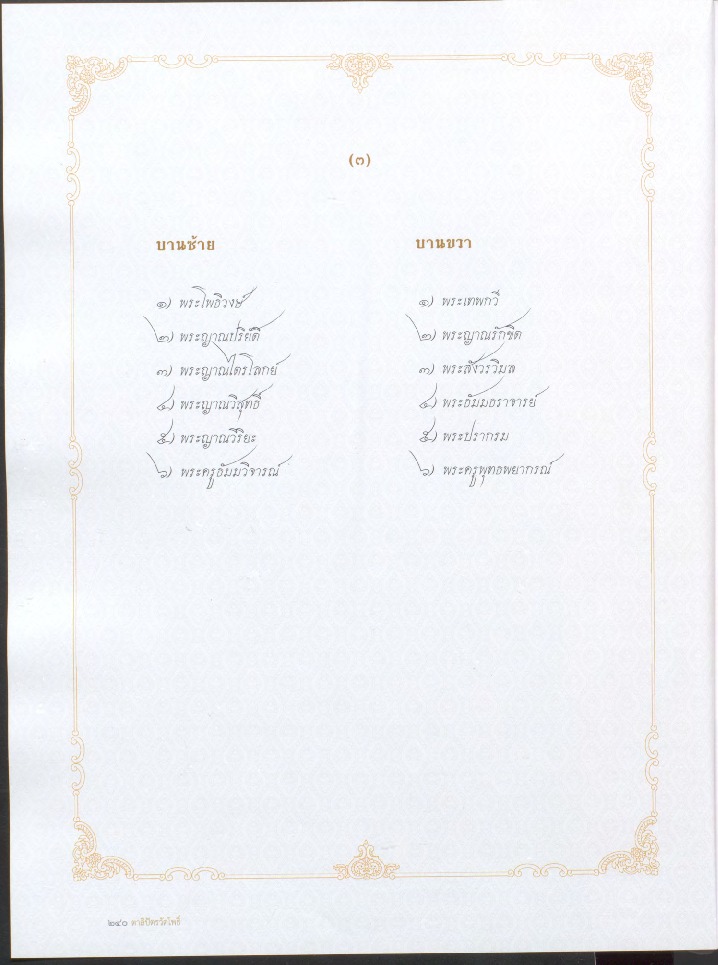 (๓)
บานซ้าย
๑) พระโพธิวงษ์
๒) พระญาณปริยัติ
๓) พระญาณไตรโลกย์
๔) พระญาณวิสุทธิ์
๕) พระญาณวิริยะ
๖) พระครูธัมมวิจารณ์
บานขวา
๑) พระเทพกวี
๒) พระญาณรักขิต
๓) พระสังวรวิมล
๔) พระธัมมธราจารย์
๕) พระปรากรม
๖) พระครูพุทธพยากรณ์
๒๔๐ ตาลิปัตรวัดโพธิ์